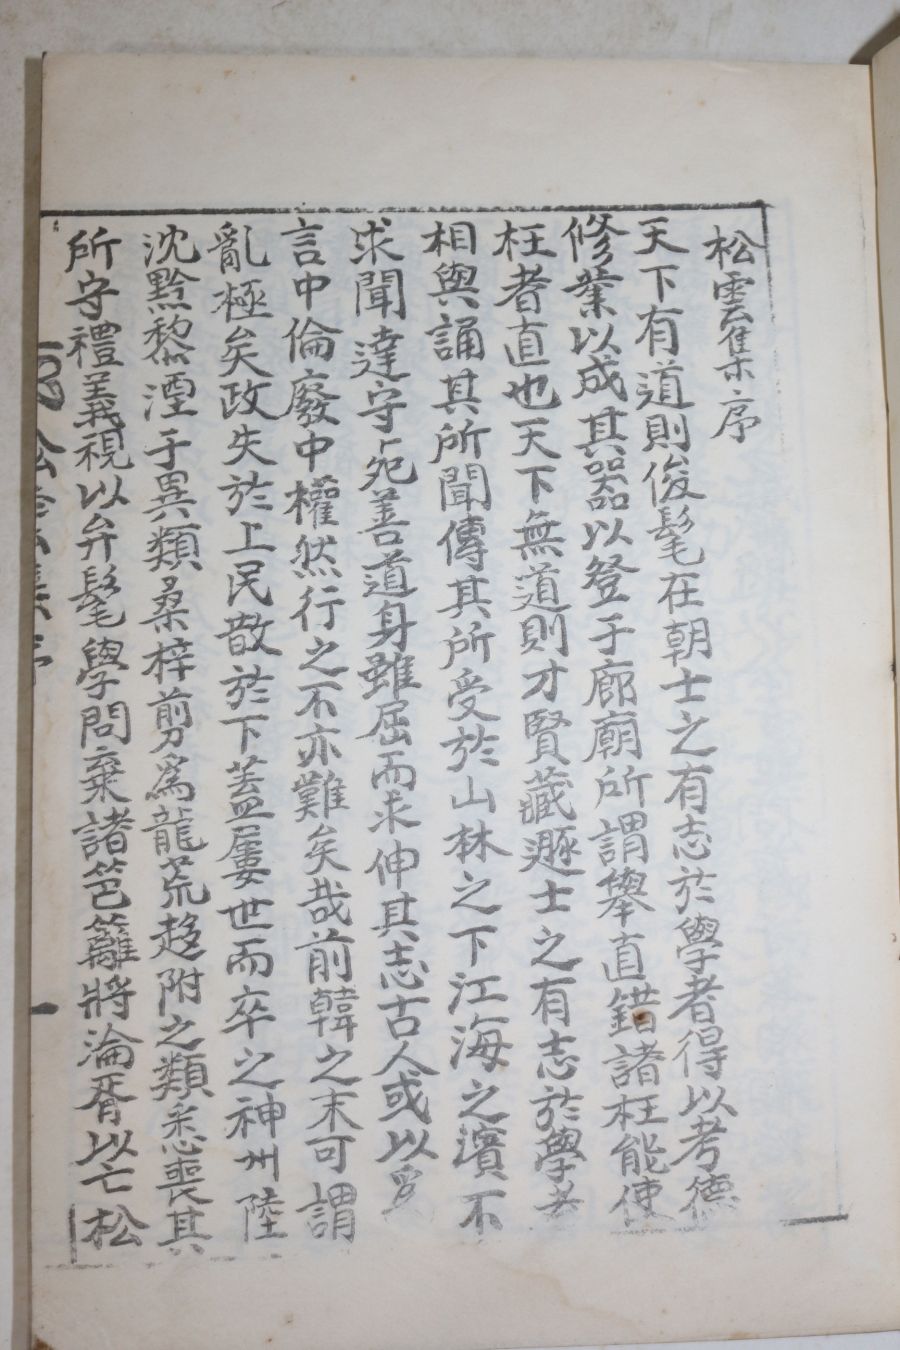 松雲集序
天下有道則俊髦在朝士之有志於學者得以考德
修業以成其器以登于廊廟所謂擧直錯諸枉能使
枉者直也天下無道則才賢藏遯士之有志於學者
相與誦其所聞傳其所受於山林之下江海之濱不
求聞達守死善道身雖屈而求伸其志古人或以爲
言中倫廢中權然行之不亦難矣哉前韓之末可謂
亂極矣政失於上民散於下盖屢世而卒之神州陸
沈黔黎湮于異類桑梓剪爲龍荒趍附之類悉喪其
所守禮義視以弁髦學問棄諸笆籬將淪胥以亡松